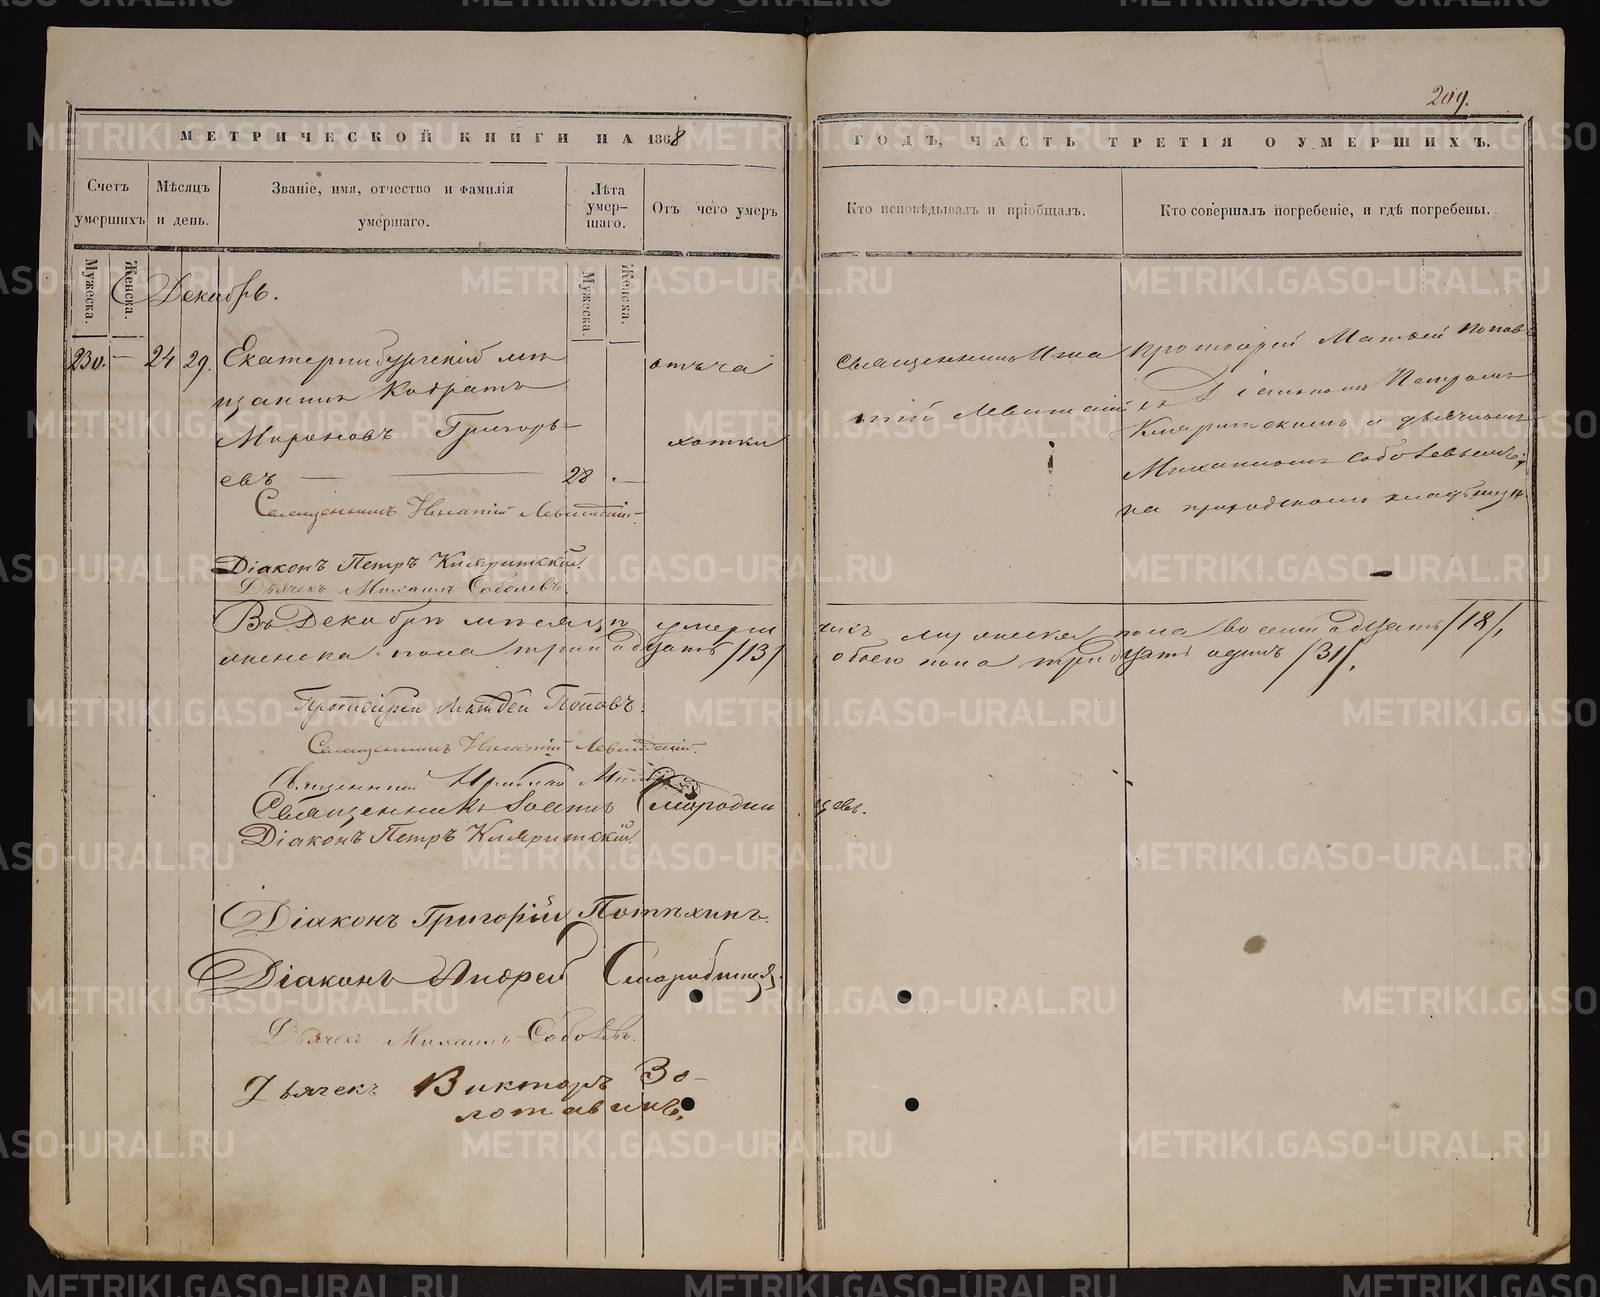 209.
МЕТРИЧЕСКОЙ КНИГИ НА 1868
ГОДЪ, ЧАСТЬ ТРЕТІЯ О УМЕРШИХЪ.
Счетъ умершихъ
Мѣсяцъ и день.
Званіе, имя, отчество и фамилія умершаго.
Лѣта умер-
шаго.
Отъ чего умеръ
Кто исповѣдывалъ и пріобщалъ.
Кто совершалъ погребеніе, и гдѣ погребены.
Мужеска.
Женска.
Мужеска.
Женска.
Декабрь.
230. — 24 29. Екатеринбургскій мѣ
щанинъ Кодратъ
Мироновъ Григорь-
евъ — 28 . —
отъ ча
хотки
Священникъ Игна
тій Левитскій
Протоіерей Матвей Поповъ
съ Діакономъ Петромъ
и дьячкомъ
Михаиломъ Соболевымъ,
на приходскомъ кладбищѣ
Священникъ Игнатій Левитскій.
Діаконъ Петръ
Дьячекъ Михаилъ Соболевъ.
Въ Декабрѣ мѣсяцѣ умерш ихъ мужеска пола восемнадцать /18/,
женска пола тринадцать /13/ обоего пола тридцать одинъ /31/.
Протоіерей Матвей Поповъ.
Священникъ Игнатій Левитскій.
Священникъ
Священникъ Іоаннъ Смородин цевъ.
Діаконъ Петръ
Діаконъ Григорій Потѣхинъ.
Діаконъ Андрей
Дьячекъ Михаилъ Соболевъ.
Дьячекъ Викторъ Зо-
лотавинъ.
METRIKI.GASO-URAL.RU